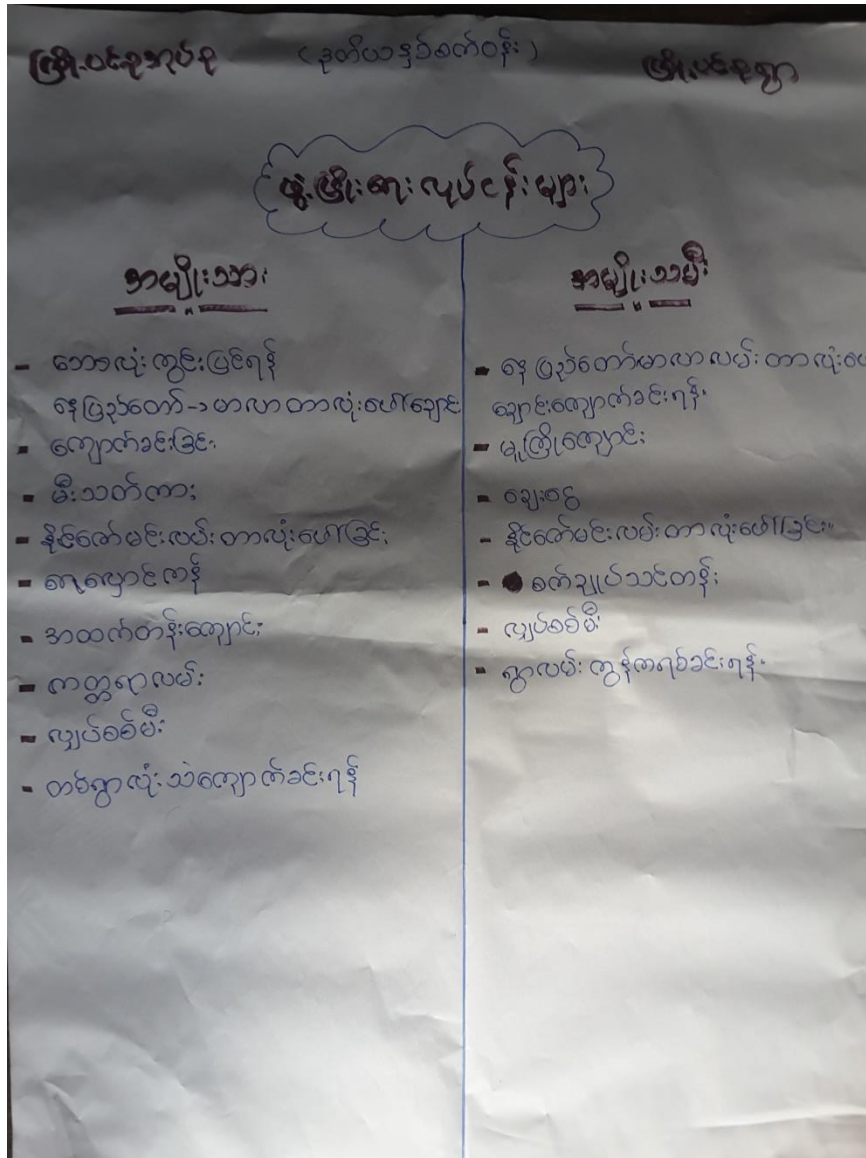 ကြိုးပင်စုအုပ်စု
(ဒုတိယနှစ်စက်ဝန်း)
ကြိုးပင်စုရွာ
ဖွံ့ဖြိုးရေးလုပ်ငန်းများ
အမျိုးသား
- ဘောလုံးကွင်းပြင်ရန်
နေပြည်တော် → မာလာတာလုံးပေါ်ချောင်
- ကျောက်ခင်းခြင်း
- မီးသတ်ကား
- နိုင်ဇော်မင်းလမ်းတာလုံးပေါ်ခြင်း
- ရေလှောင်ကန်
- အထက်တန်းကျောင်း
- ကတ္တရာလမ်း
- လျှပ်စစ်မီး
- တစ်ရွာလုံးသဲကျောက်ခင်းရန်
အမျိုးသမီး
- နေပြည်တော်မာလာလမ်းတာလုံးပေ
ချောင်းကျောက်ခင်းရန်
- မူကြိုကျောင်း
- ချေးငွေ
- နိုင်ဇော်မင်းလမ်းတာလုံးပေါ်ခြင်း။
- စက်ချုပ်သင်တန်း
- လျှပ်စစ်မီး
- ရွာလမ်းကွန်ကရစ်ခင်းရန်